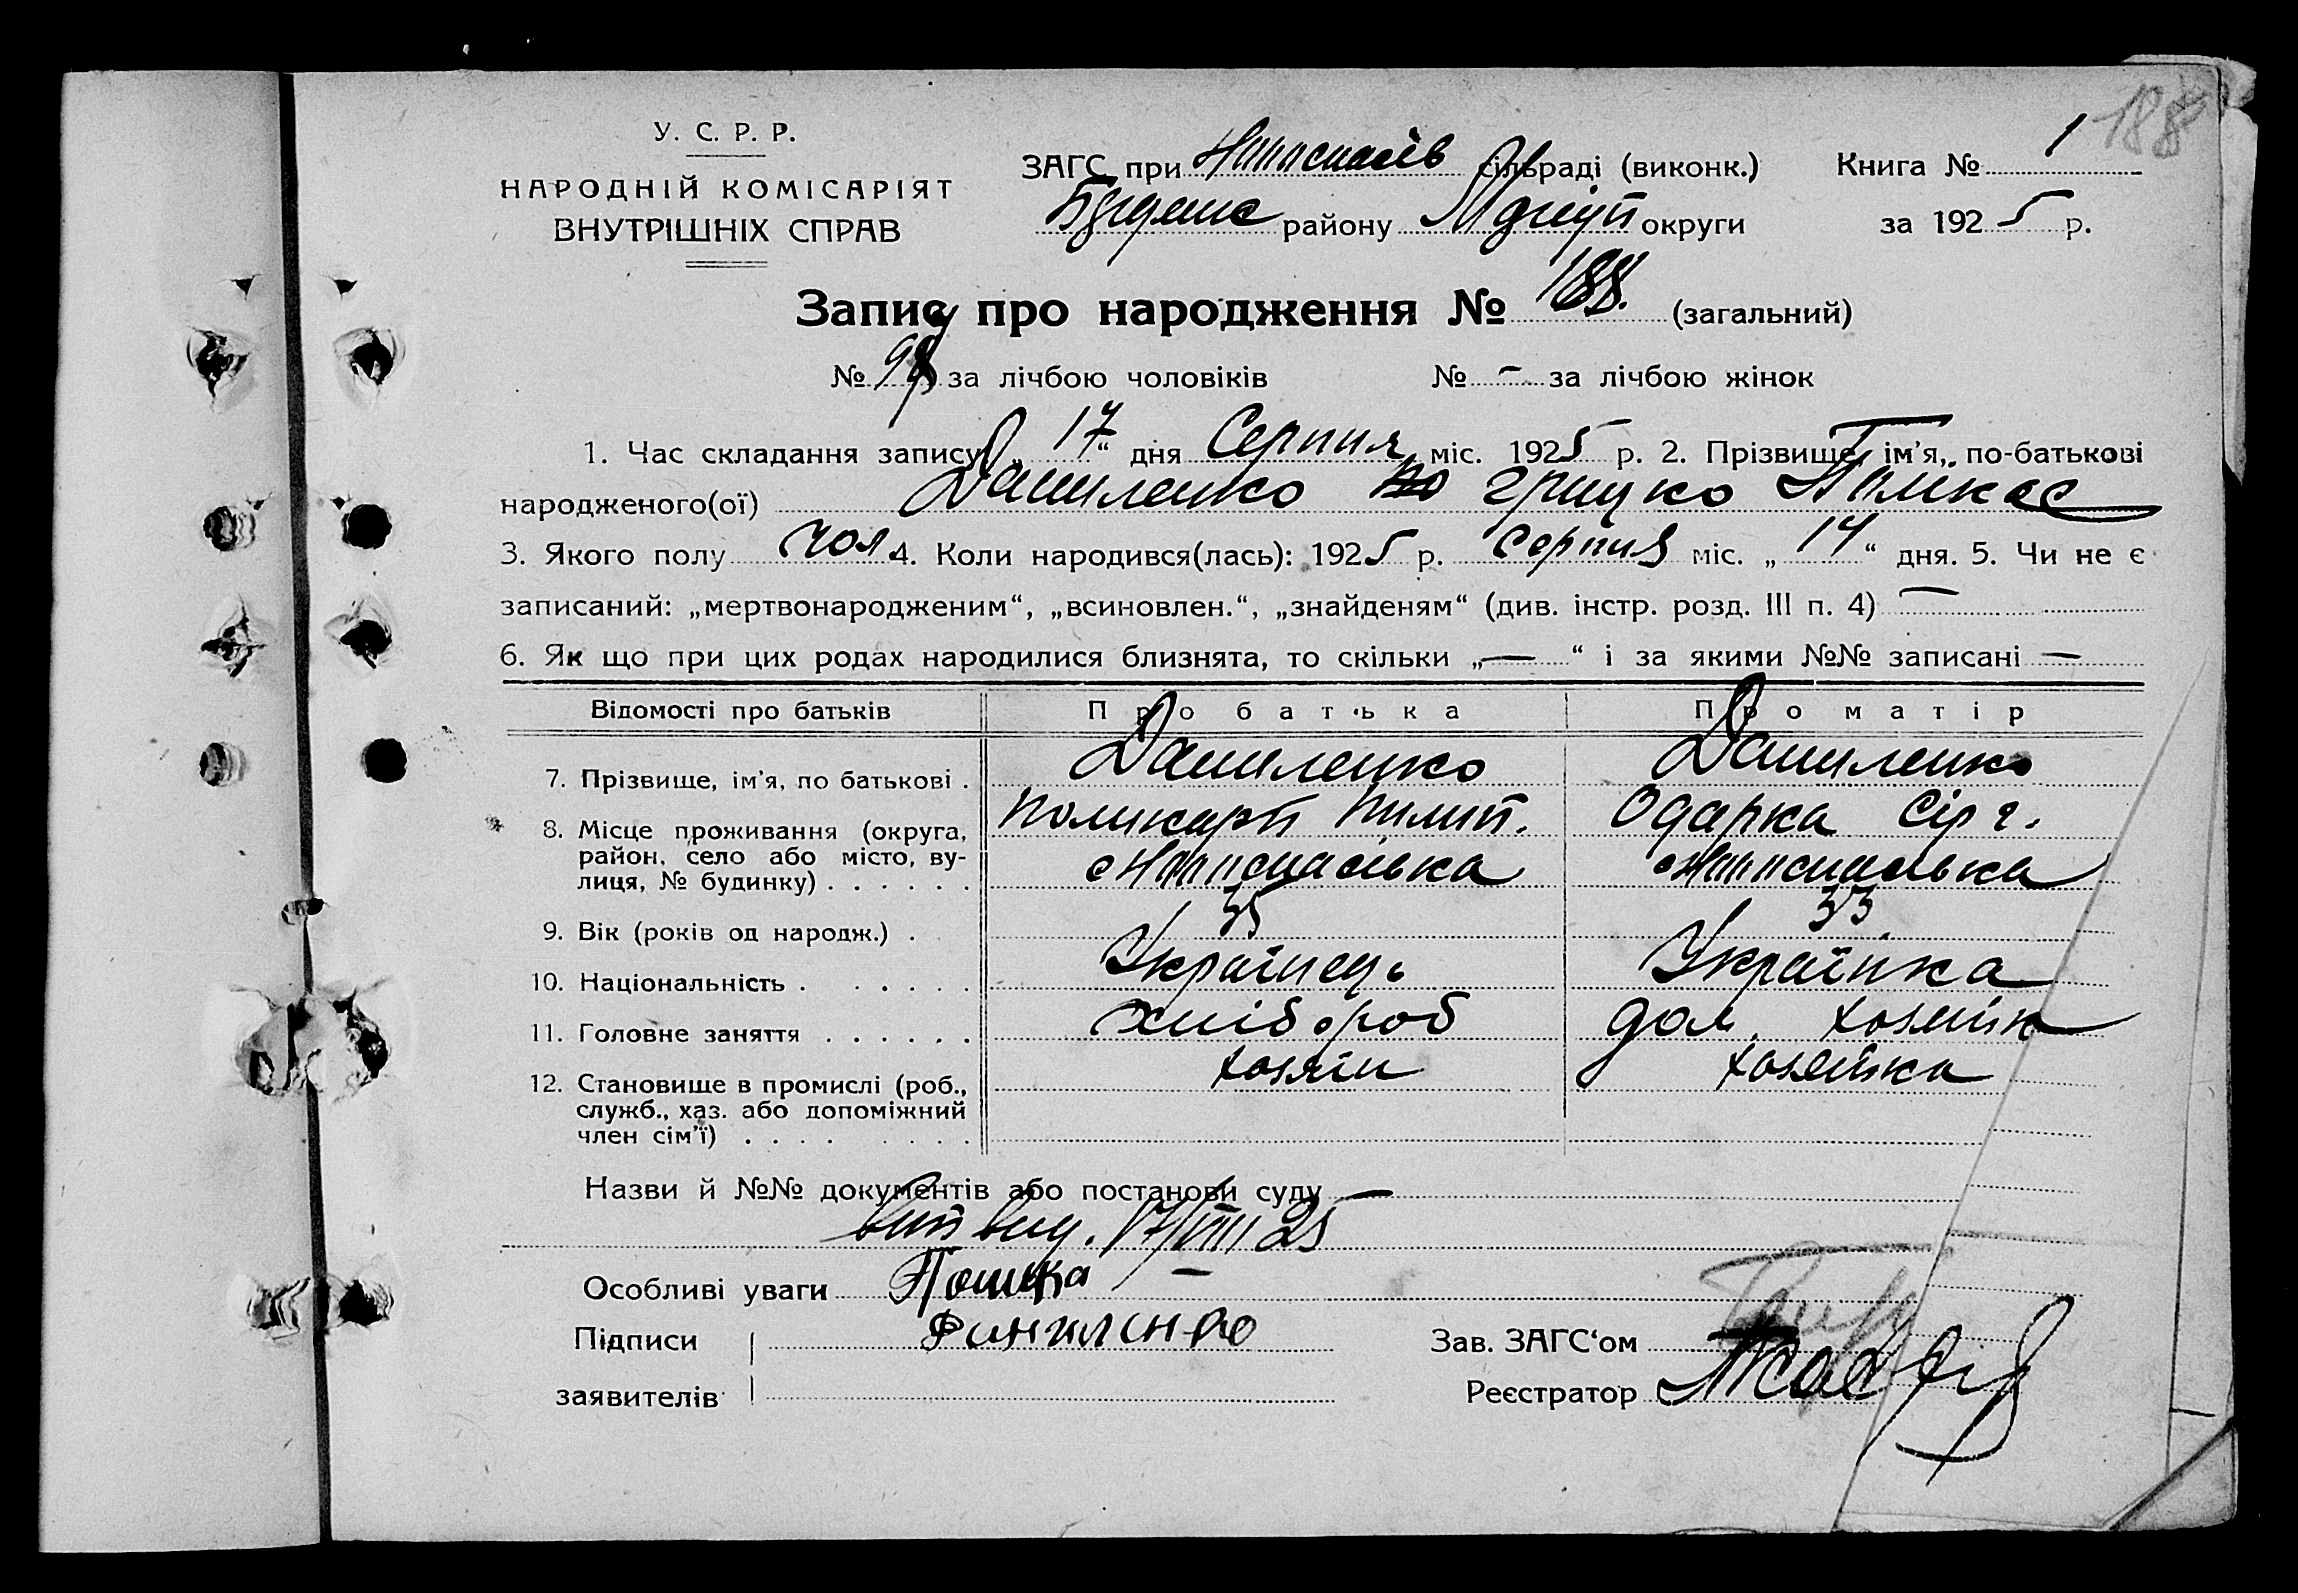 188
У. С. Р. Р.
НАРОДНІЙ КОМІСАРІЯТ
ВНУТРІШНІХ СПРАВ
ЗАГС при сільраді (виконк.) Книга № 1
району округи за 1925 р.
Запис про народження № 188. (загальний)
№ за лічбою чоловіків № – за лічбою жінок
1. Час складання запису „ 17 “ дня Серпня міс. 1925 р. 2. Прізвище, ім'я, по-батькові
народженого(ої) Даниленко Грицко
3. Якого полу чол. 4. Коли народився(лась): 1925 р. Серпня міс. „ 14 “ дня. 5. Чи не є
записаний: „мертвонародженим“, „всиновлен.“, „знайденям“ (див. інстр. розд. III п. 4) —
6. Як що при цих родах народилися близнята, то скільки „ — “ і за якими №№ записані —
Відомості про батьків Про батька Про матір
7. Прізвище, ім'я, по батькові . Даниленко Даниленко
Поликарп Пилип. Одарка Сірг.
8. Місце проживання (округа, район, село або місто, вулиця, № будинку) . . . . . .
9. Вік (років од народж.) . 35 33
10. Національність . . . . . . Українець Українка
11. Головне заняття . . . . . . хлібороб дом. хозяйк
12. Становище в промислі (роб., служб., хаз. або допоміжний член сім'ї) . . . . . . . . хозяін хозяйка
Назви й №№ документів або постанови суду —
17/VIII 25
Особливі уваги —
Підписи
заявителів
Зав. ЗАГС‘ом
Реєстратор